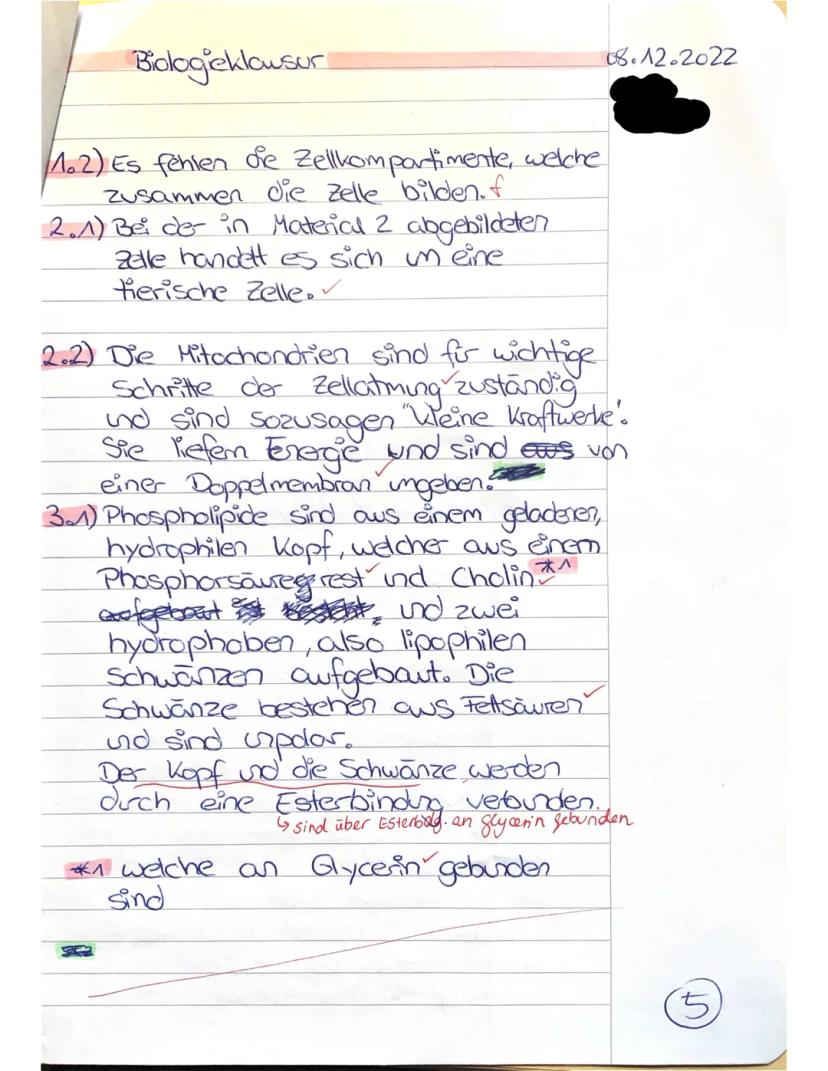 Biologieklausur 08.12.2022
1.2) Es fehlen die Zellkompartimente, welche
zusammen die Zelle bilden. f
2.1) Bei der in Material 2 abgebildeten
Zelle handelt es sich um eine
tierische Zelle. ✓
2.2) Die Mitochondrien sind für wichtige
Schritte der Zellatmung ✓ zuständig
und sind sozusagen "kleine Kraftwerke".
Sie liefern Energie und sind aus von
einer Doppelmembran ✓ umgeben.
3.1) Phospholipide sind aus einem geladenen,
hydrophilen Kopf, welcher aus einem
Phosphorsäurerest ✓ und Cholin ✓ *1
aufgebaut ist, und zwei
hydrophoben, also lipophilen
Schwänzen aufgebaut. Die
Schwänze bestehen aus Fettsäuren ✓
und sind unpolar.
Der Kopf und die Schwänze werden
durch eine Esterbindung verbunden.
↳ sind über Esterbdg. an glycerin gebunden
*1 welche an Glycerin ✓ gebunden
sind
5